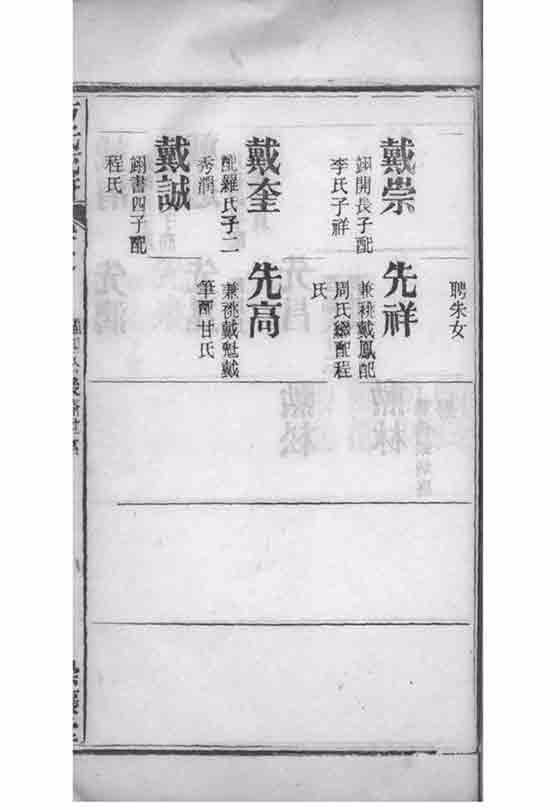 聘朱女
戴崇
翊開長子配
李氏子祥
先祥
兼祧戴鳳配
周氏繼配程
氏
戴奎
配羅氏子二
秀潤
先高
兼祧戴魁戴
筆配甘氏
戴誠
翊書四子配
程氏